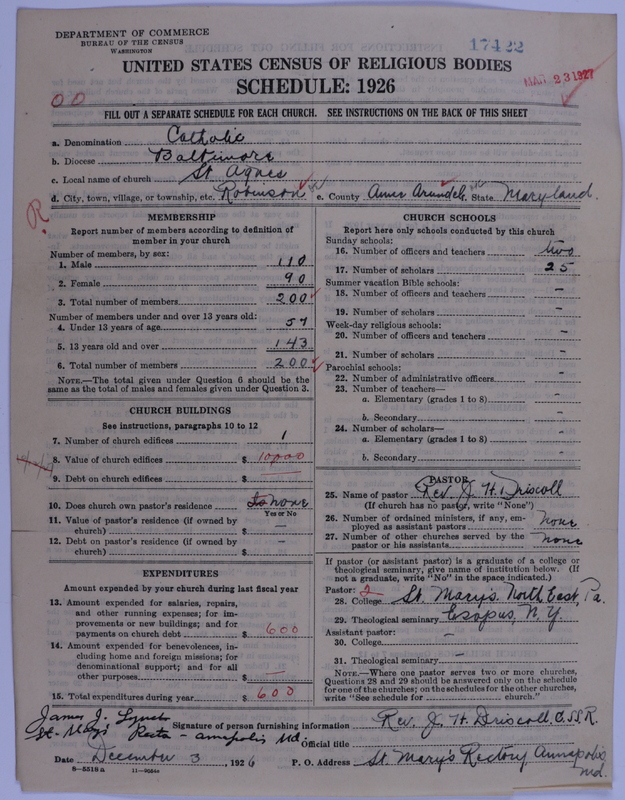 DEPARTMENT OF COMMERCE
BUREAU OF THE CENSUS
WASHINGTON
17422
UNITED STATES CENSUS OF RELIGIOUS BODIES
SCHEDULE: 1926
MAR 23 1927
00
FILL OUT A SEPARATE SCHEDULE FOR EACH CHURCH. SEE INSTRUCTIONS ON THE BACK OF THIS SHEET
a. Denomination Catholic
b. Diocese Baltimore
c. Local name of church St Agnes
d. City, town, village, or township, etc. Robinson e. County Anne Arundel, State Maryland.
R
MEMBERSHIP
Report number of members according to definition of member in your church
Number of members, by sex:
1. Male 110
2. Female 90
3. Total number of members 200
Number of members under and over 13 years old:
4. Under 13 years of age 57
5. 13 years old and over 143
6. Total number of members 200
NOTE.—The total given under Question 6 should be the same as the total of males and females given under Question 3.
CHURCH BUILDINGS
See instructions, paragraphs 10 to 12
7. Number of church edifices 1
8. Value of church edifices $ 10,000
9. Debt on church edifices $ —
10. Does church own pastor's residence none
Yes or No
11. Value of pastor's residence (if owned by church) $ —
12. Debt on pastor's residence (if owned by church) $ —
EXPENDITURES
Amount expended by your church during last fiscal year
13. Amount expended for salaries, repairs, and other running expenses; for improvements or new buildings; and for payments on church debt $ 600
14. Amount expended for benevolences, including home and foreign missions; for denominational support; and for all other purposes $ —
15. Total expenditures during year $ 600
CHURCH SCHOOLS
Report here only schools conducted by this church
Sunday schools:
16. Number of officers and teachers two
17. Number of scholars 25
Summer vacation Bible schools:
18. Number of officers and teachers –
19. Number of scholars –
Week-day religious schools:
20. Number of officers and teachers –
21. Number of scholars –
Parochial schools:
22. Number of administrative officers –
23. Number of teachers—
a. Elementary (grades 1 to 8) –
b. Secondary –
24. Number of scholars—
a. Elementary (grades 1 to 8) –
b. Secondary –
PASTOR
25. Name of pastor Rev. J. H. Driscoll
(If church has no pastor, write "None")
26. Number of ordained ministers, if any, employed as assistant pastors none
27. Number of other churches served by the pastor or his assistants none
If pastor (or assistant pastor) is a graduate of a college or theological seminary, give name of institution below. (If not a graduate, write "No" in the space indicated.)
Pastor: 2
28. College St. Mary's. North East, Pa.
29. Theological seminary Esopus, N.Y.
Assistant pastor:
30. College –
31. Theological seminary –
NOTE.—Where one pastor serves two or more churches, Questions 28 and 29 should be answered only on the schedule for one of the churches; on the schedules for the other churches, write "See schedule for church."
James J. Lynch
St. Mary's Rector - Annapolis Md.
Signature of person furnishing information Rev. J. H. Driscoll, C.SS.R.
Official title
Date December 3, 1926 P. O. Address St. Mary's Rectory Annapolis Md.
8—5518 a